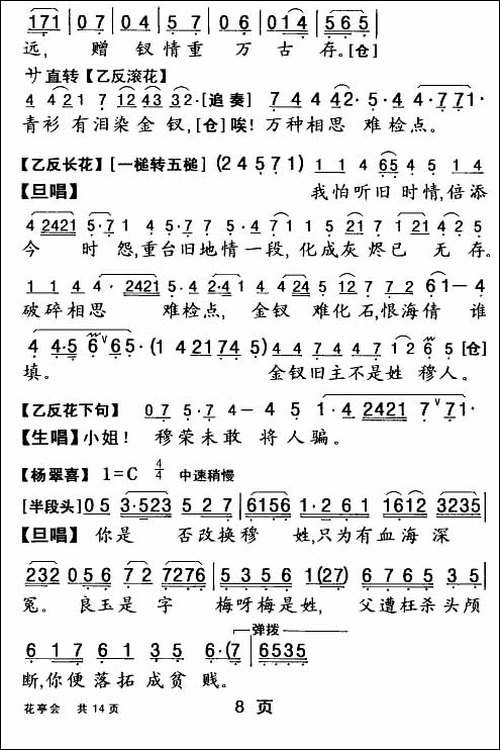 1 7 1 0 7 5 · 7 0 4 5 7 0 6 0 1 4 5 6 5
远， 赠 钗 情 重 万 古 存。[仓]
サ直转【乙反滚花】
4 4 2 1 7 1 2 4 3 3 2 · [追奏] 7 4 4 4 2 · 5 · 4 4 · 7 7 1 ·
青衫 有泪染金 钗,[仓]唉! 万种相思 难检点。
【乙反长花】[一槌转五槌] (2 4 5 7 1) 1 1 4 6 5 4 5 1 4
【旦唱】 我怕听旧 时情,倍添
4 2421 5 · 7 1 5 7 · 5 7 · 1 2 4 5 1 2 1 7 1 2 1 4 2 5
今 时 怨,重台旧地情一段, 化成灰 烬已 无 存。
1 1 4 4 · 2421 5 · 4 2 · 4 1 4 2 4 5 1 2 7 7 2 6 1 — 4
破碎相思 难检点, 金钗 难化石,恨海倩 谁
4 4 · 5 6 ∨ 6 5 · (1 4 21 74 5) 4 4 7 4 4 7 1 2 6 [仓]
填。 金钗旧主不是姓 穆人。
【乙反花下句】 0 7 5 · 7 4 — 4 5 1 · 4 2421 7 ∨ 7 1 ·
【生唱】小姐! 穆荣未敢 将人骗。
【杨翠喜】 1=C 4/4 中速稍慢
[半段头] 0 5 3 · 523 5 2 7 | 6156 1 · 2 6 1 1612 3235 |
【旦唱】 你是 否改换穆 姓,只为有血海 深
232 0 5 6 7 2 7276 | 5 6 0 5 6 1 (27) 6 7 6 5 3 · 5 |
冤。 良玉是 字 梅呀梅是姓, 父遭枉杀头颅
弹拨
6 1 7 6 1 3 5 6 · (7 | 6535)
断,你便落拓 成贫 贱。
花亭会 共14页 8 页